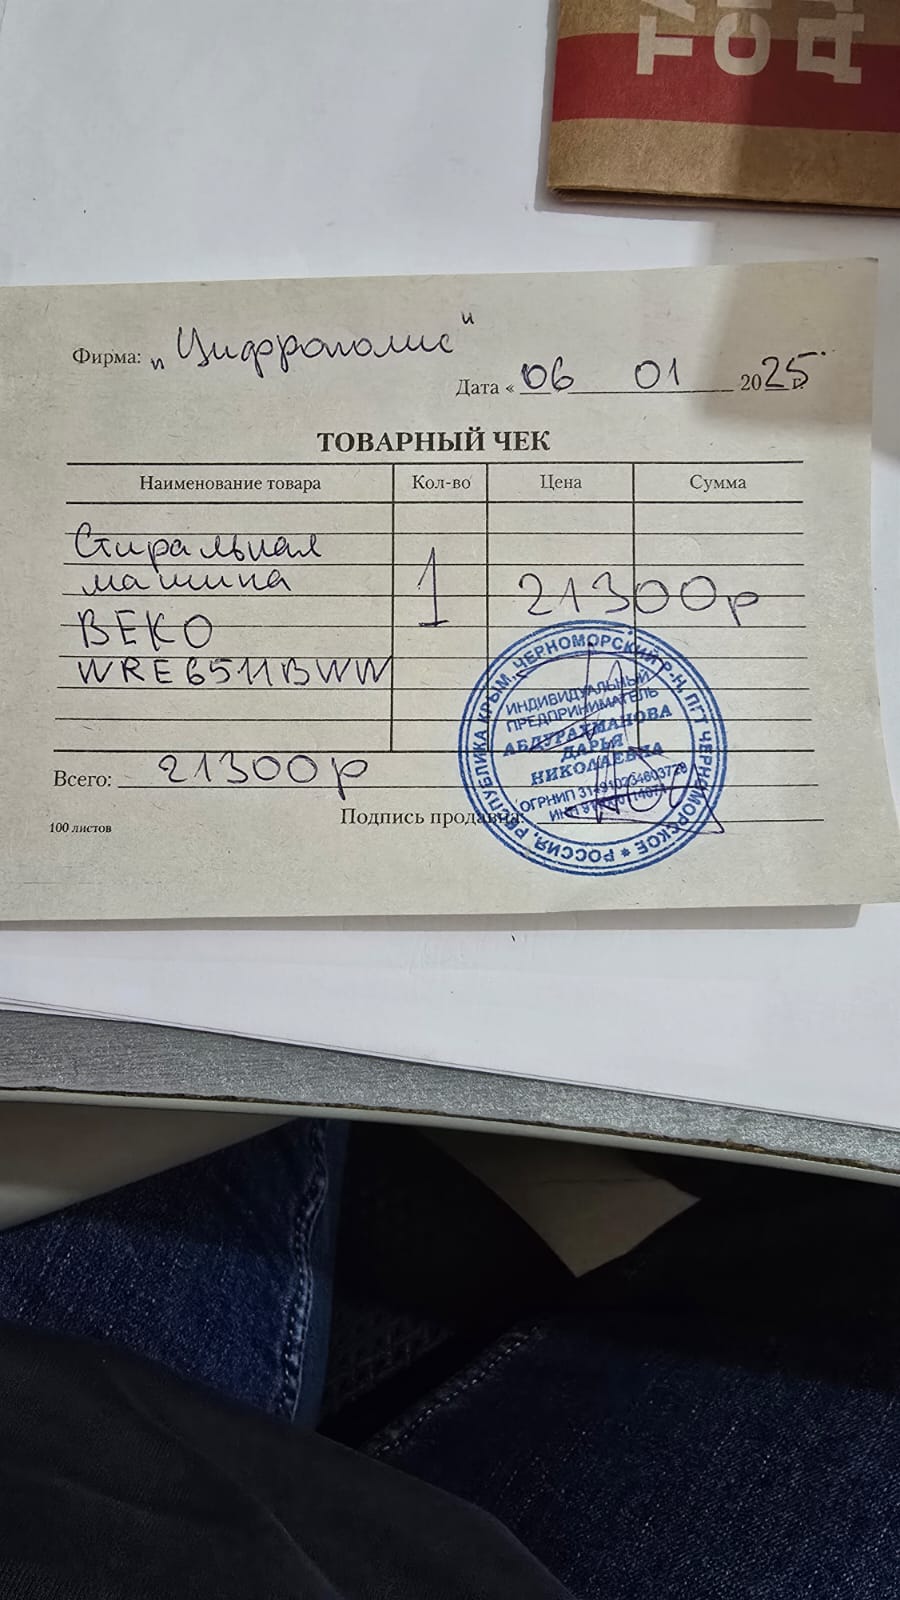 Фирма: „Цифрополис"
Дата « 06 01 2025 г.
ТОВАРНЫЙ ЧЕК
Наименование товара Кол-во Цена Сумма
Стиральная
машина
BEKO
WRE6511BWW
1 21300р
РОССИЯ, РЕСПУБЛИКА КРЫМ, ЧЕРНОМОРСКИЙ Р-Н, ПГТ ЧЕРНОМОРСКОЕ *
ИНДИВИДУАЛЬНЫЙ
ПРЕДПРИНИМАТЕЛЬ
АБДУРАХМАНОВА
ДАРЬЯ
НИКОЛАЕВНА
ОГРНИП
ИНН
Всего: 21300р
Подпись продавца:
100 листов